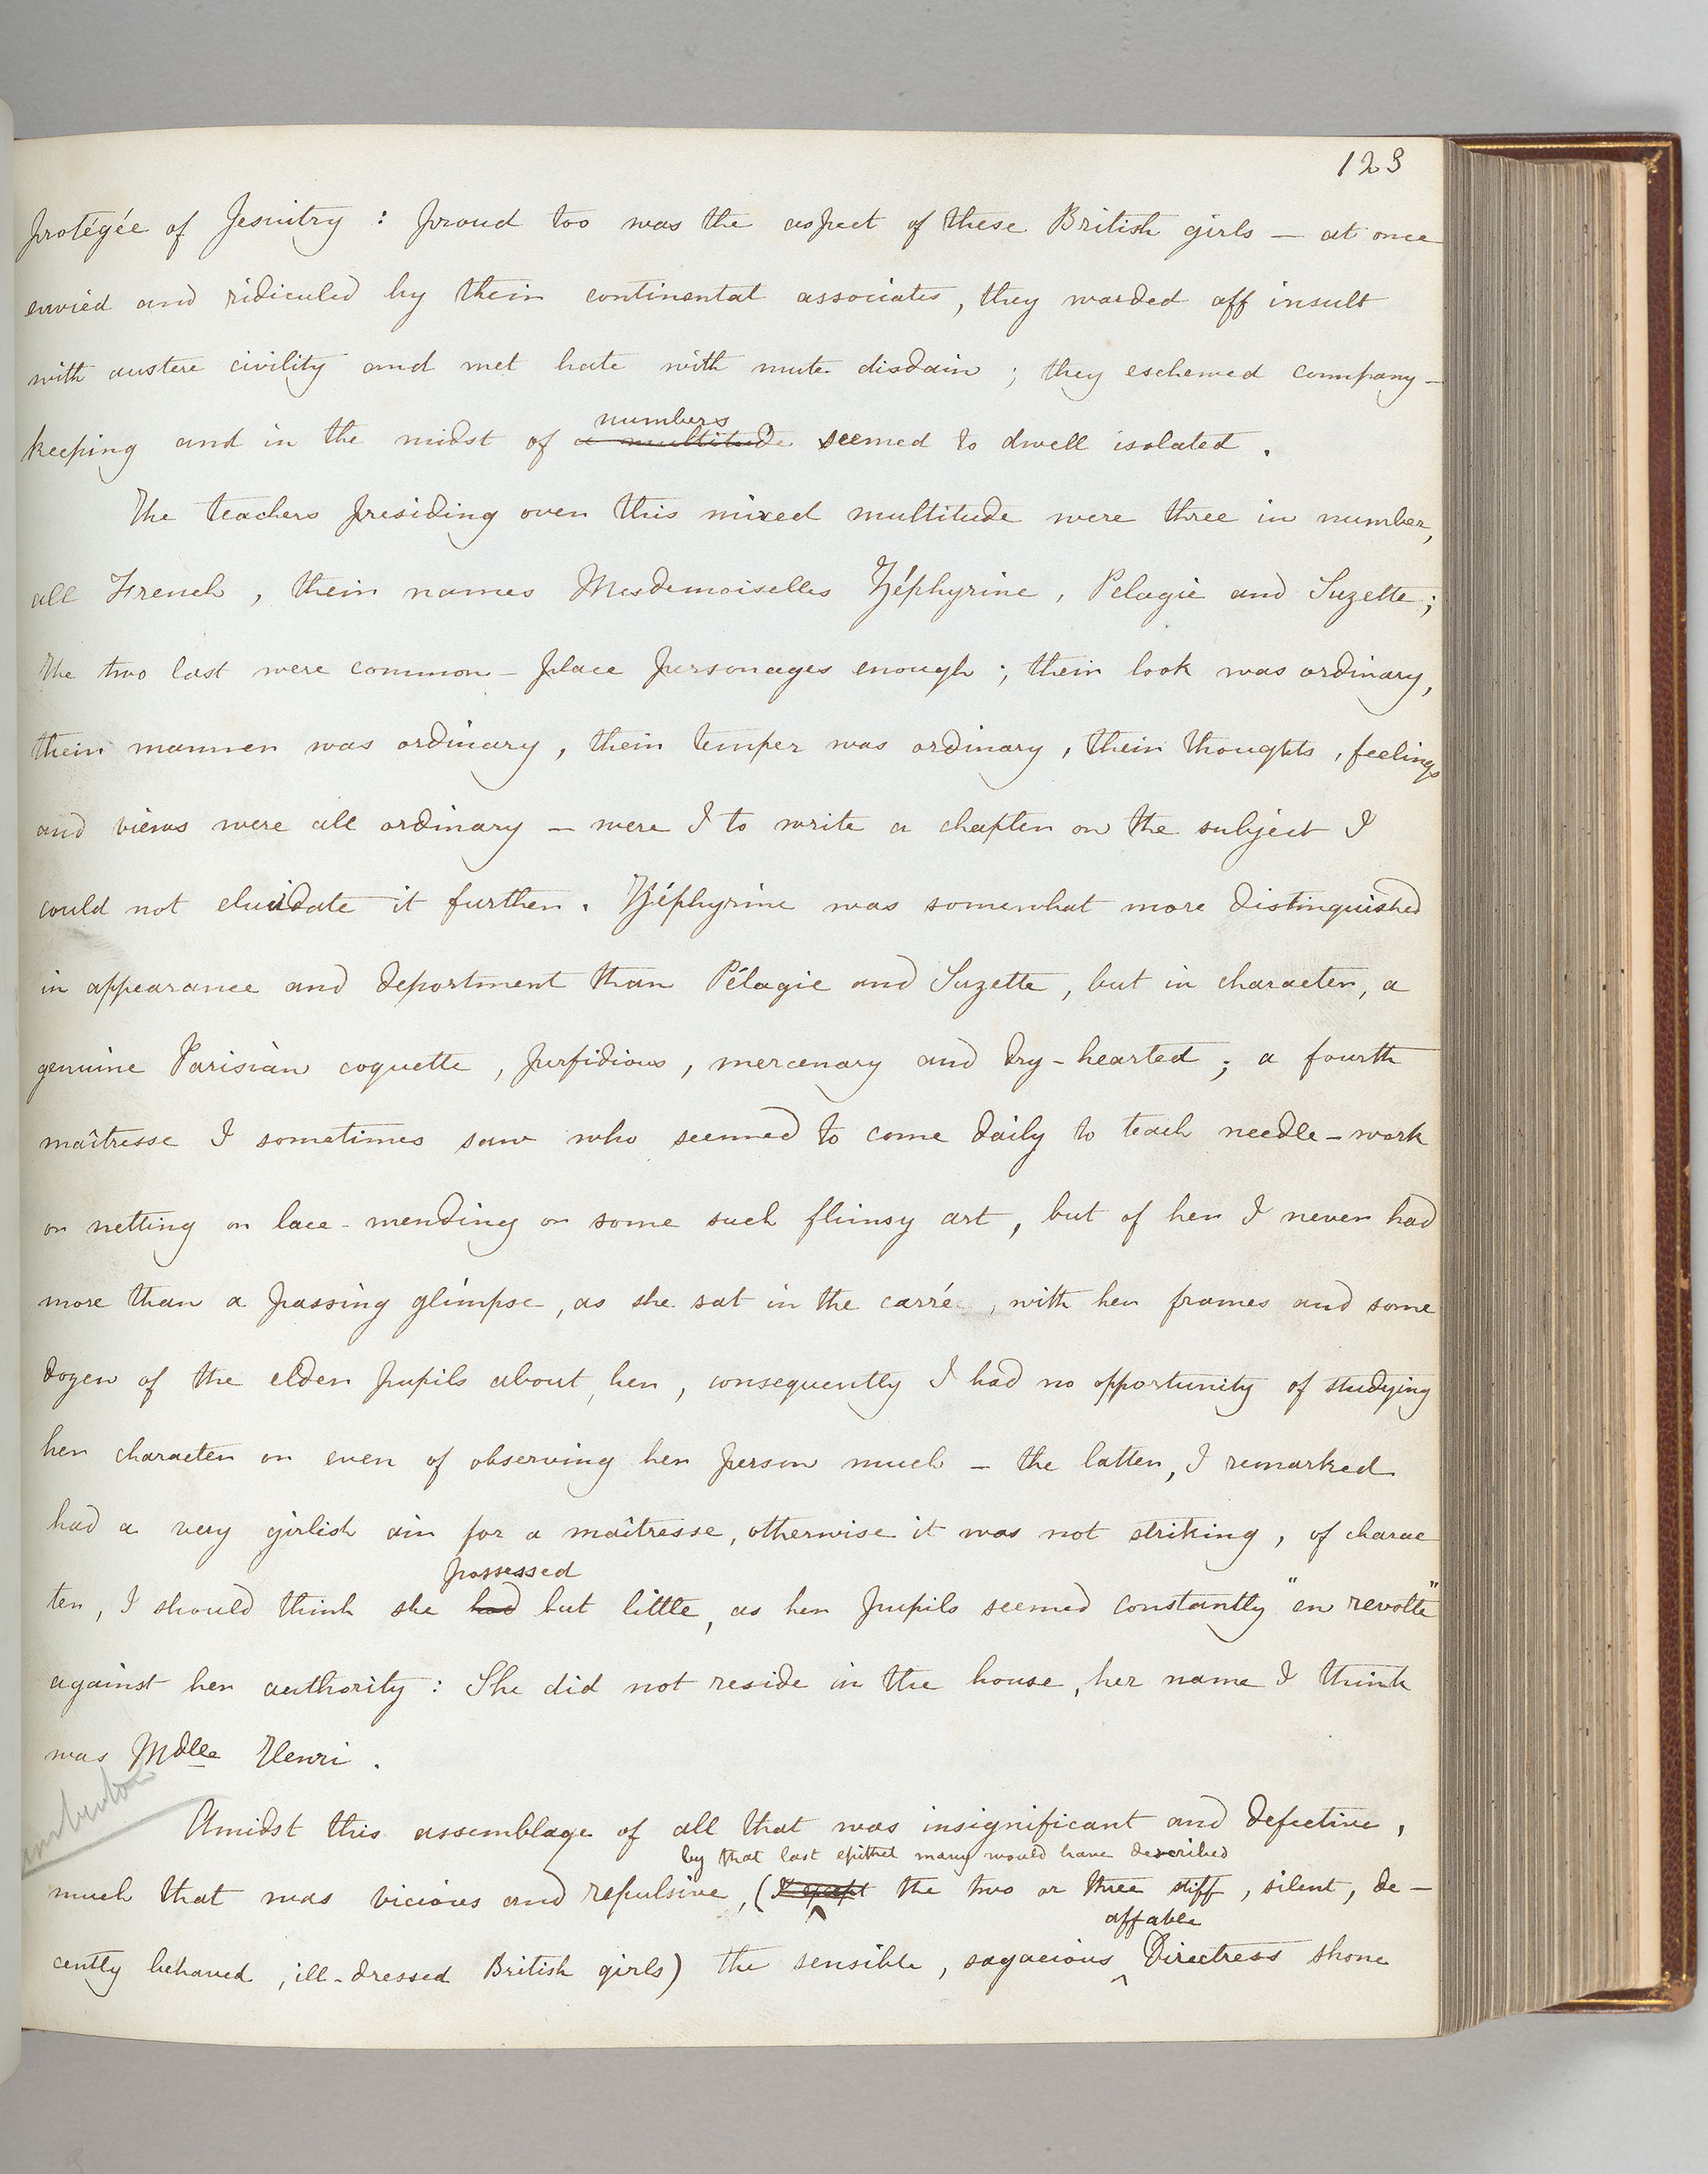 123
protégée of Jesuitry : proud too was the aspect of these British girls — at once
envied and ridiculed by their continental associates, they warded off insult
with austere civility and met hate with mute disdain ; they eschewed company-
numbers
keeping and in the midst of a multitude seemed to dwell isolated .
The teachers presiding over this mixed multitude were three in number,
all French , their names Mesdemoiselles Zéphyrine , Pelagie and Suzette ;
The two last were common-place personages enough ; their look was ordinary,
their manner was ordinary , their temper was ordinary , their thoughts , feelings
and views were all ordinary — were I to write a chapter on the subject I
could not elucidate it further . Zéphyrine was somewhat more distinguished
in appearance and deportment than Pélagie and Suzette , but in character, a
genuine Parisian coquette , perfidious , mercenary and dry-hearted ; a fourth
maîtresse I sometimes saw who seemed to come daily to teach needle-work
or netting or lace-mending or some such flimsy art , but of her I never had
more than a passing glimpse , as she sat in the carré , with her frames and some
dozen of the elder pupils about her , consequently I had no opportunity of studying
her character or even of observing her person much — the latter, I remarked
had a very girlish air for a maîtresse, otherwise it was not striking , of charac
possessed
ter , I should think she had but little , as her pupils seemed constantly "en revolte"
against her authority : She did not reside in the house , her name I think
was Mdlle Henri .
Amidst this assemblage of all that was insignificant and defective ,
by that last epithet many would have described
much that was vicious and repulsive , ( the two or three stiff , silent , de-
affable
cently behaved , ill-dressed British girls) the sensible , sagacious ^ Directress shone